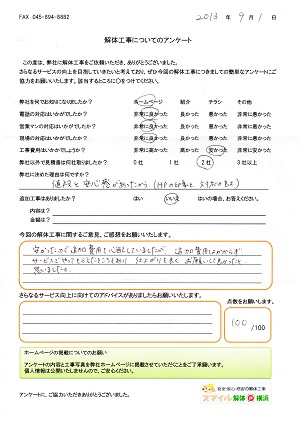 FAX 045-894-8882
2013 年 9 月 1 日
解体工事についてのアンケート
この度は、弊社に解体工事をご依頼いただき、ありがとうございました。
さらなるサービスの向上を目指していきたいと考えており、ぜひ今回の解体工事につきましての簡単なアンケートにご
協力をお願いします。該当するところに○をつけてください。
弊社を何でお知りになりましたか？ ホームページ 紹介 チラシ その他
電話の対応はいかがでしたか？ 非常に良かった 良かった 悪かった 非常に悪かった
営業マンの対応はいかがでしたか？ 非常に良かった 良かった 悪かった 非常に悪かった
現場の対応はいかがでしたか？ 非常に良かった 良かった 悪かった 非常に悪かった
工事費用はいかがでしょうか？ 非常に高かった 高かった 安かった 非常に安かった
弊社以外で見積書は何社取りましたか？ 0 社 1 社 2 社 3 社以上
弊社に決めた理由は何ですか？
値段と安心感があったから。(HPの印象と
追加工事はありましたか？ はい いいえ はいの場合、お答えください。
内容は？
金額は？
今回の解体工事に関するご意見、ご感想をお願いします。
安かったので追加費用を心配していましたが 追加費用はかからず
サービスでやってもらえたところもあり 仕上がりも良く お願いして良かったと
思いました。
さらなるサービス向上に向けてのアドバイスがありましたらお願いいたします。
点数をお願いします。
100 /100
ホームページの掲載についてのお願い
アンケートの内容と工事写真を弊社ホームページに掲載させていただくことをご了承願います。
個人情報は公開いたしませんので、ご安心ください。
アンケートに、ご協力いただきありがとうございました。
安全・安心・感謝の解体工事
スマイル解体@横浜